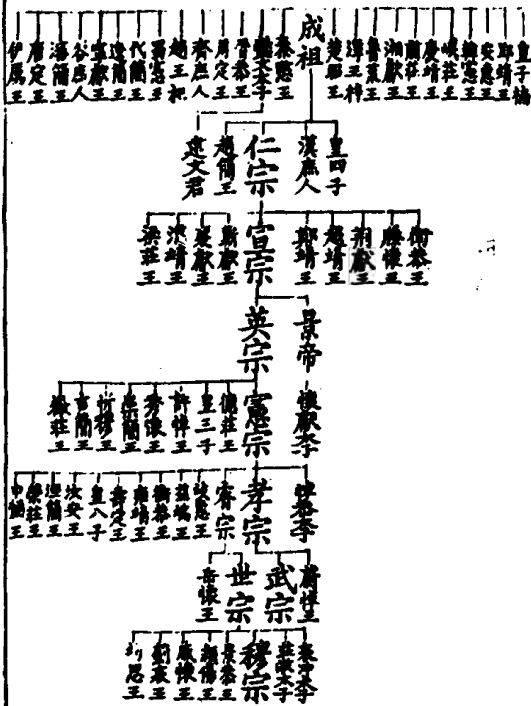 皇子楠
郢靖王
安惠王
韓憲王
岷莊王
慶靖王
肅莊王
湘獻王
魯荒王
潭王梓
楚昭王
成祖
秦愍王
懿文太子
晉恭王
周定王
齊庶人
趙王杞
蜀獻王
代簡王
遼簡王
寧獻王
谷庶人
瀋簡王
唐定王
伊厲王
皇四子
漢庶人
仁宗
趙簡王
建文君
衛恭王
滕懷王
荊獻王
越靖王
鄭靖王
宣宗
蘄獻王
襄獻王
淮靖王
梁莊王
景帝
英宗
懷獻太子
憲宗
德莊王
皇三子
許悼王
秀懷王
崇簡王
忻穆王
吉簡王
徽莊王
悼恭太子
孝宗
睿宗
岐惠王
益端王
衡恭王
雍靖王
壽定王
皇八子
汝安王
涇簡王
榮莊王
申懿王
蔚悼王
武宗
世宗
岳懷王
哀沖太子
莊敬太子
穆宗
景恭王
潁殤王
戚懷王
薊哀王
均思王